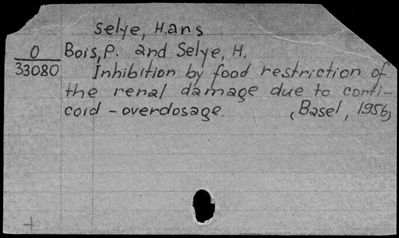 Selye, Hans
O Bois, P. and Selye, H.
33080 Inhibition by food restriction of
the renal damage due to corti-
coid-overdosage. (Basel, 1956)